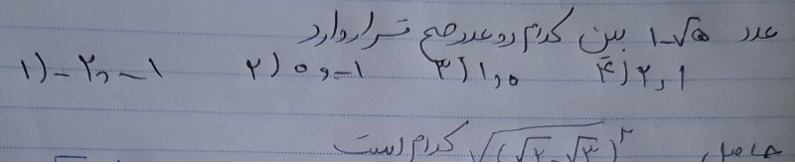 عدد ۱-√۵ بین کدام دو عدد صحیح قرار دارد
۱) -۲ و -۱ ۲) ۰ و -۱ ۳) ۱ و ۰ ۴) ۲ و ۱
حاصل √(√۲-√۳)^۲ کدام است